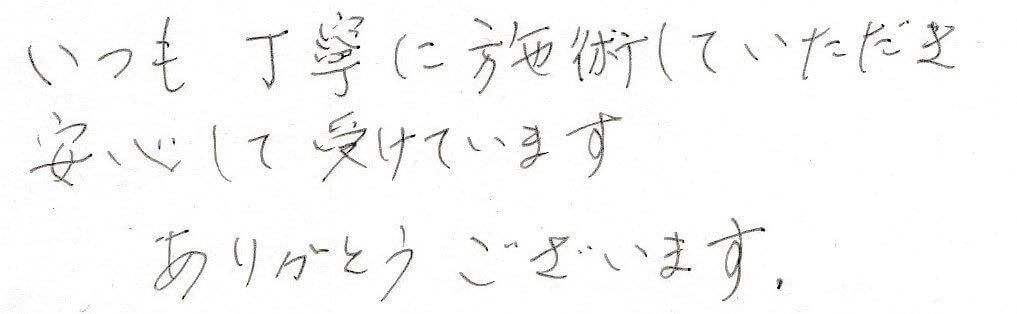 いつも丁寧に施術していただき
安心して受けています
ありがとうございます.